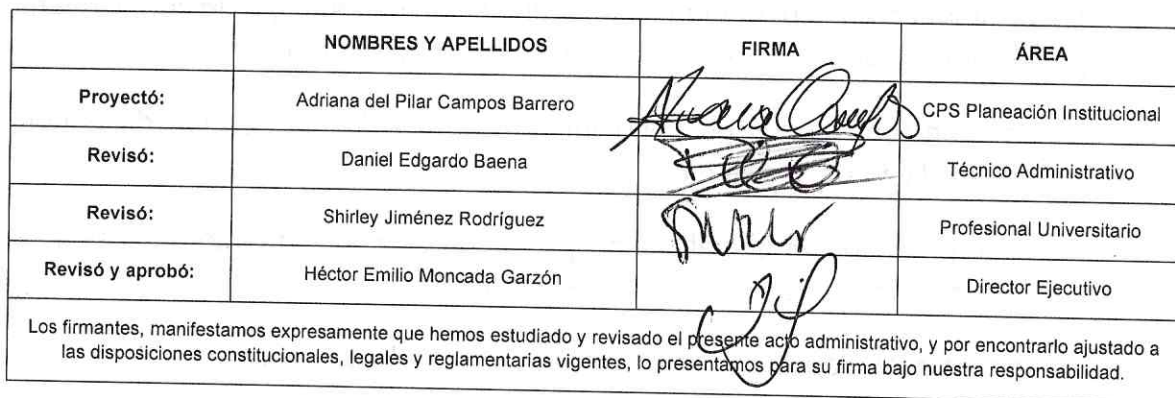 NOMBRES Y APELLIDOS FIRMA ÁREA
Proyectó: Adriana del Pilar Campos Barrero CPS Planeación Institucional
Revisó: Daniel Edgardo Baena Técnico Administrativo
Revisó: Shirley Jiménez Rodríguez Profesional Universitario
Revisó y aprobó: Héctor Emilio Moncada Garzón Director Ejecutivo
Los firmantes, manifestamos expresamente que hemos estudiado y revisado el presente acto administrativo, y por encontrarlo ajustado a
las disposiciones constitucionales, legales y reglamentarias vigentes, lo presentamos para su firma bajo nuestra responsabilidad.